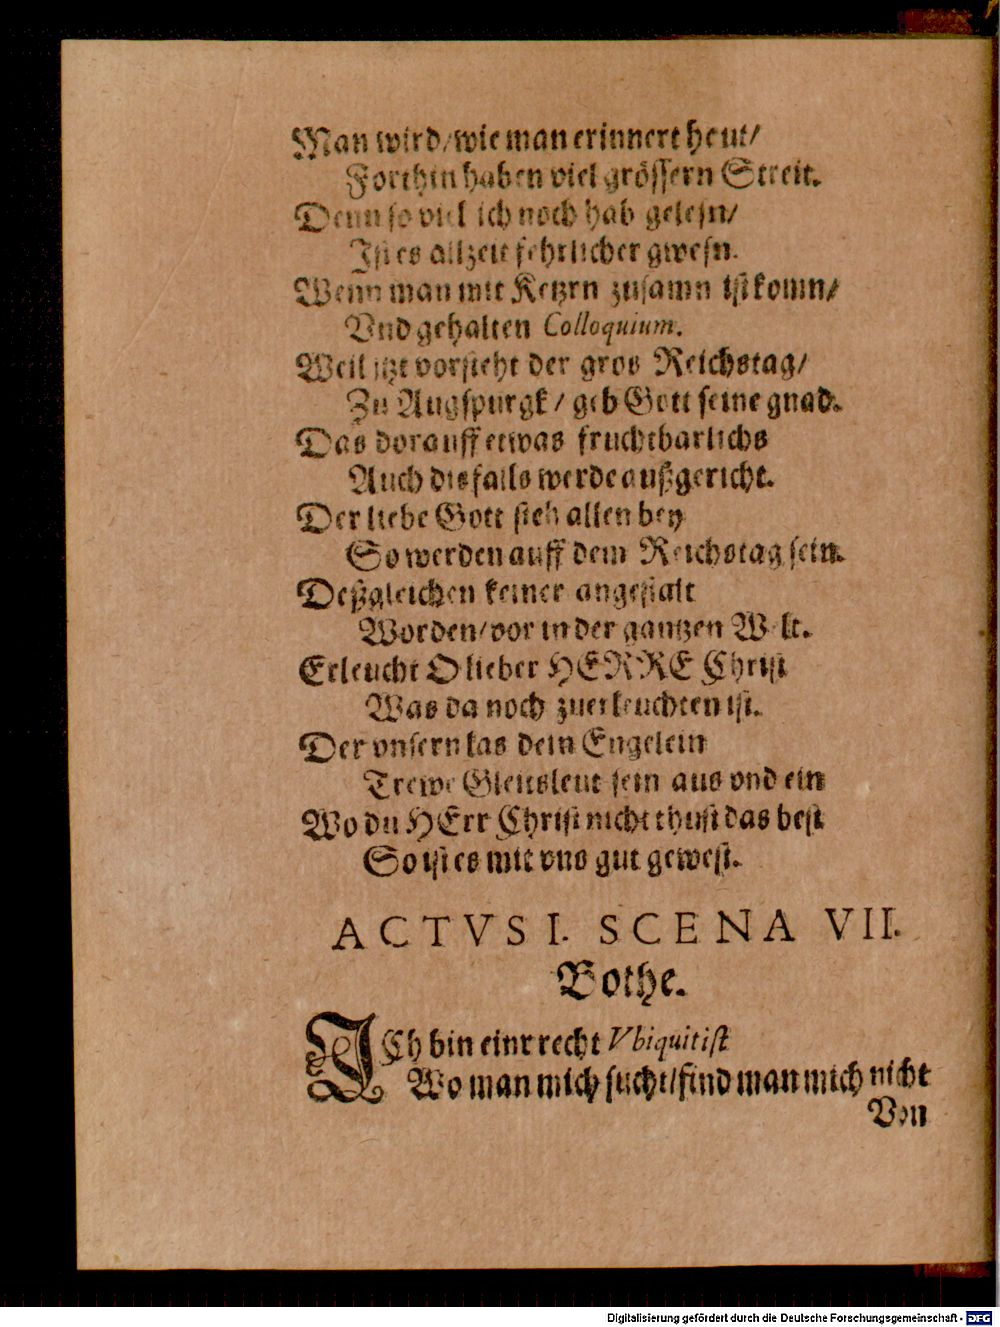 Man wird/ wie man erinnert heut/
Forthin haben viel grössern Streit.
Denn so viel ich noch hab gelesn/
Ist es allzeit fehrlicher gwesn.
Wenn man mit Ketzrn zusamn ist komn/
Vnd gehalten Colloquium.
Weil itzt vorsteht der gros Reichstag/
Zu Augspurgk/ geb Gott seine gnad.
Das dorauff etwas fruchtbarlichs
Auch disfalls werde außgericht.
Der liebe Gott steh allen bey
So werden auff dem Reichstag sein.
Deßgleichen keiner angestalt
Worden/ vor in der gantzen Welt.
Erleucht O lieber HERRE Christ
Was da noch zuerleuchten ist.
Der vnsern las dein Engelein
Trewe Gleitsleut sein aus vnd ein
Wo du HErr Christ nicht thust das best
So ist es mit vns gut gewest.
ACTVS I. SCENA VII.
Bothe.
ICh bin einr recht Vbiquitist
Wo man mich sucht/ find man mich nicht
Von
Digitalisierung gefördert durch die Deutsche Forschungsgemeinschaft - DFG